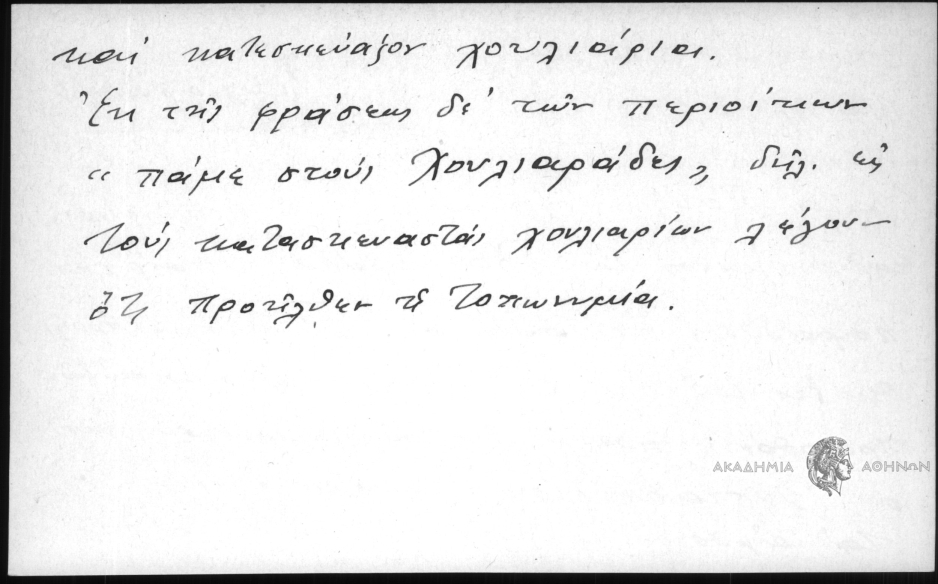 καί κατεσκεύαζον χουλιάρια.
Ἐκ τῆς φράσεως δέ τῶν περιοίκων
"πάμε στούς Χουλιαράδες", δηλ. εἰς
τούς κατασκευαστάς χουλιαρίων λέγουν
ὅτι προῆλθεν ἡ τοπωνυμία.
ΑΚΑΔΗΜΙΑ ΑΘΗΝΩΝ